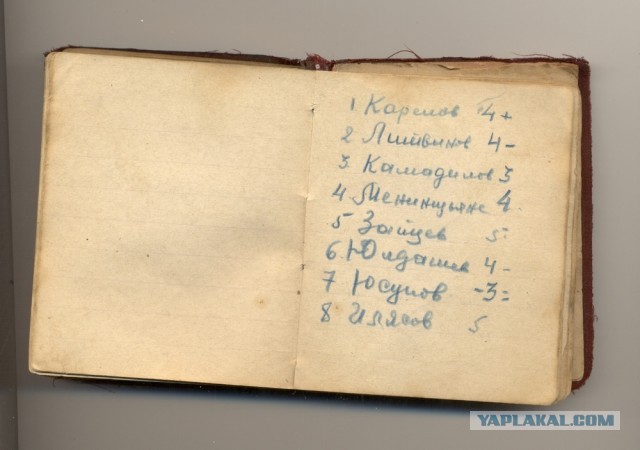 1 Карелов 4+
2 Литвинов 4-
3 Камадилов 3
4 Менинщьянс 4
5 Зайцев 5-
6 Юлдашев 4-
7 Юсупов -3=
8 Илясов 5
YAPLAKAL.COM